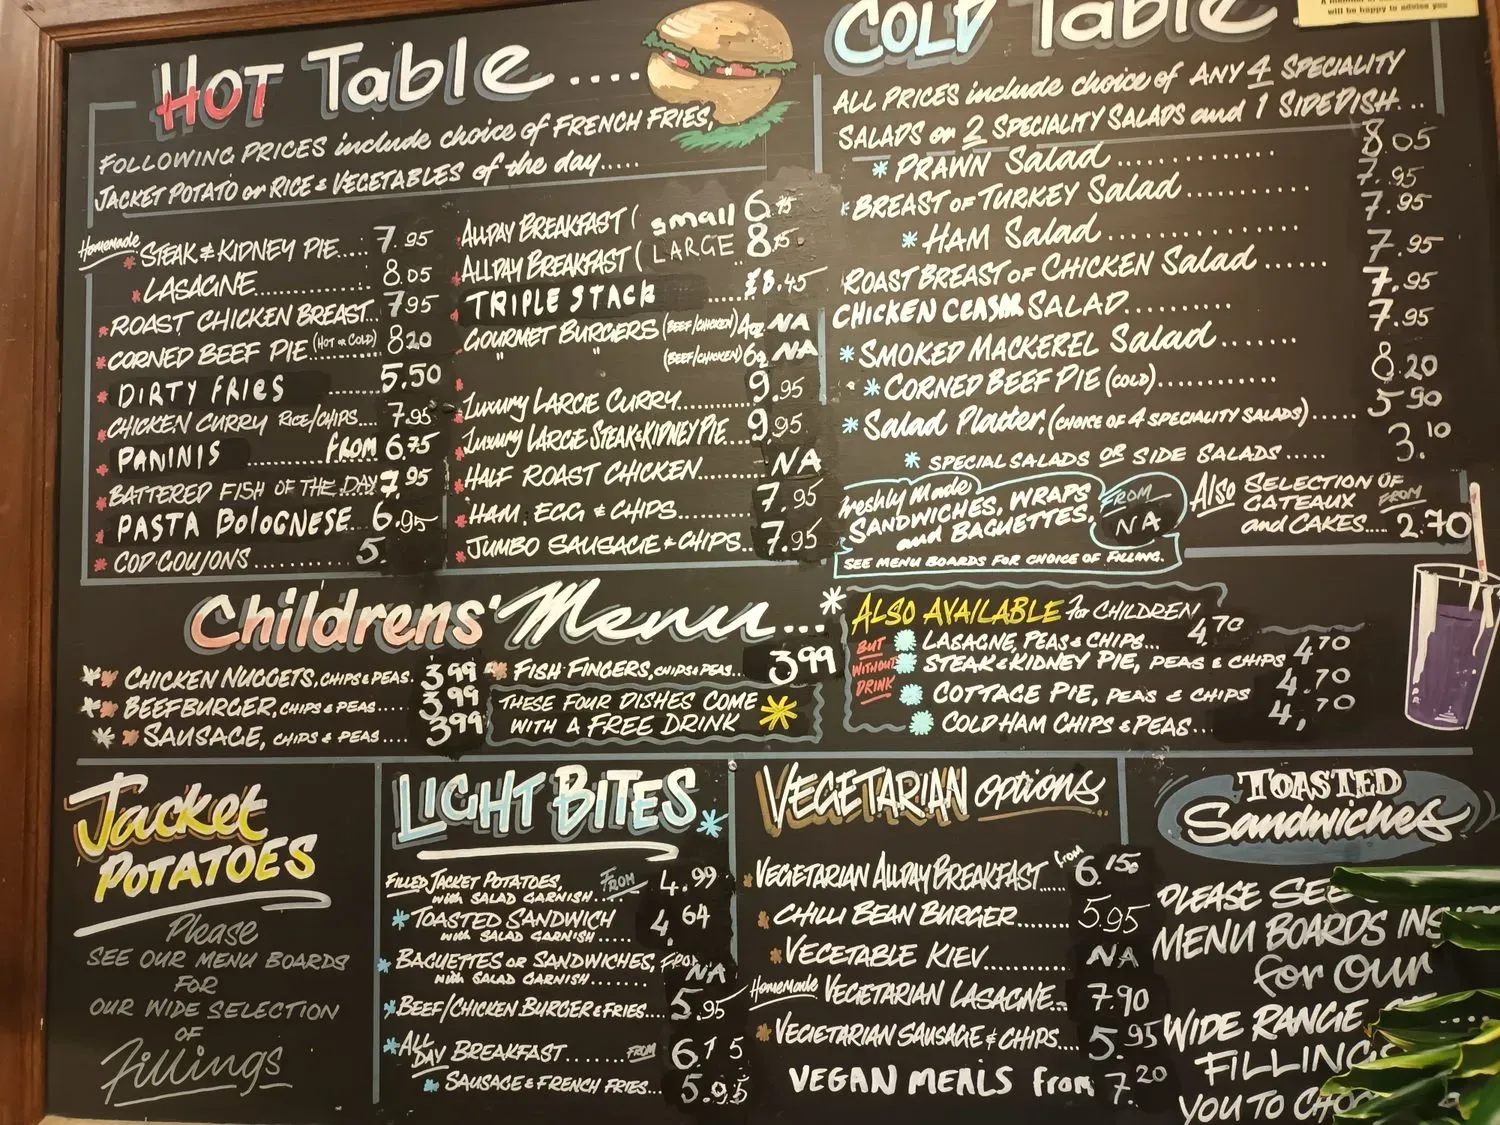 HOT Table....
FOLLOWING PRICES include choice of FRENCH FRIES,
JACKET POTATO or RICE & VEGETABLES of the day.....
Homemade STEAK & KIDNEY PIE..... 7.95
LASAGNE............... 8.05
ROAST CHICKEN BREAST... 7.95
CORNED BEEF PIE (HOT or COLD) 8.20
DIRTY FRIES ......... 5.50
CHICKEN CURRY RICE/CHIPS... 7.95
PANINIS ............ from 6.75
BATTERED FISH OF THE DAY 7.95
PASTA BOLOGNESE.. 6.95
COD GOUJONS .......... 5.
ALLDAY BREAKFAST ( small 6.75
ALLDAY BREAKFAST ( LARGE 8.75
TRIPLE STACK ...... £8.45
GOURMET BURGERS (BEEF/CHICKEN) 4oz NA
" " (BEEF/CHICKEN) 6oz NA
Luxury LARGE CURRY.......... 9.95
Luxury LARGE STEAK & KIDNEY PIE... 9.95
HALF ROAST CHICKEN........ NA
HAM, EGG & CHIPS.......... 7.95
JUMBO SAUSAGE + CHIPS.. 7.95
COLD Table
will be happy to advise you
ALL PRICES include choice of ANY 4 SPECIALITY
SALADS or 2 SPECIALITY SALADS and 1 SIDEDISH...
PRAWN Salad .............. 8.05
BREAST OF TURKEY Salad ........... 7.95
HAM Salad ............... 7.95
ROAST BREAST OF CHICKEN Salad ...... 7.95
CHICKEN CEASAR SALAD.......... 7.95
SMOKED MACKEREL Salad ....... 7.95
CORNED BEEF PIE (COLD)............ 8.20
Salad Platter. (CHOICE OF 4 SPECIALITY SALADS)..... 5 90
SPECIAL SALADS OR SIDE SALADS ..... 3.10
Freshly Made
SANDWICHES, WRAPS
and BAGUETTES,
FROM
NA
SEE MENU BOARDS FOR CHOICE OF FILLING.
Also SELECTION OF
GATEAUX FROM
and CAKES.... 2.70
Childrens' Menu...
CHICKEN NUGGETS, CHIPS & PEAS. 3 99
BEEFBURGER, CHIPS & PEAS..... 3.99
SAUSAGE, CHIPS & PEAS .... 3.99
FISH FINGERS, CHIPS & PEAS... 3 99
THESE FOUR DISHES COME
WITH A FREE DRINK
ALSO AVAILABLE for CHILDREN
BUT
WITHOUT
DRINK
LASAGNE, PEAS & CHIPS... 4 70
STEAK & KIDNEY PIE, PEAS & CHIPS 4 70
COTTAGE PIE, PEAS & CHIPS 4.70
COLD HAM CHIPS & PEAS... 4,70
Jacket
POTATOES
Please
SEE OUR MENU BOARDS
FOR
OUR WIDE SELECTION
OF
Fillings
LIGHT BITES
FILLED JACKET POTATOES, FROM 4.99
with SALAD GARNISH ......
TOASTED SANDWICH 4.64
with SALAD GARNISH .....
BAGUETTES OR SANDWICHES, FROM NA
with SALAD GARNISH .......
BEEF/CHICKEN BURGER & FRIES.... 5.95
ALL DAY BREAKFAST....... FROM 6.15
SAUSAGE & FRENCH FRIES... 5.95
VEGETARIAN options
VEGETARIAN ALLDAY BREAKFAST.... from 6.15
CHILLI BEAN BURGER....... 5.95
VEGETABLE KIEV.......... NA
Homemade VEGETARIAN LASAGNE.. 7.90
VEGETARIAN SAUSAGE & CHIPS.... 5.95
VEGAN MEALS from 7.20
TOASTED
Sandwiches
PLEASE SEE
MENU BOARDS
for OUR
WIDE RANGE
FILLINGS
YOU TO